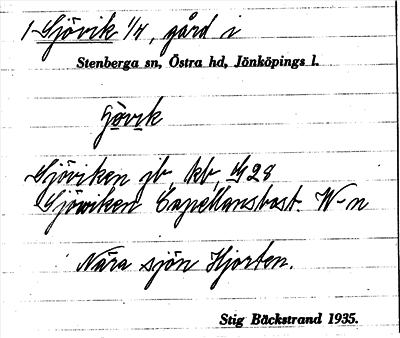 1 Sjövik 1/4, gård i
Stenberga sn, Östra hd, Jönköpings l.
Sjöviken jb, kb, 
Sjöwiken Capellansbost. W-n
Nära sjön Hjorten.
Stig Bäckstrand 1935.